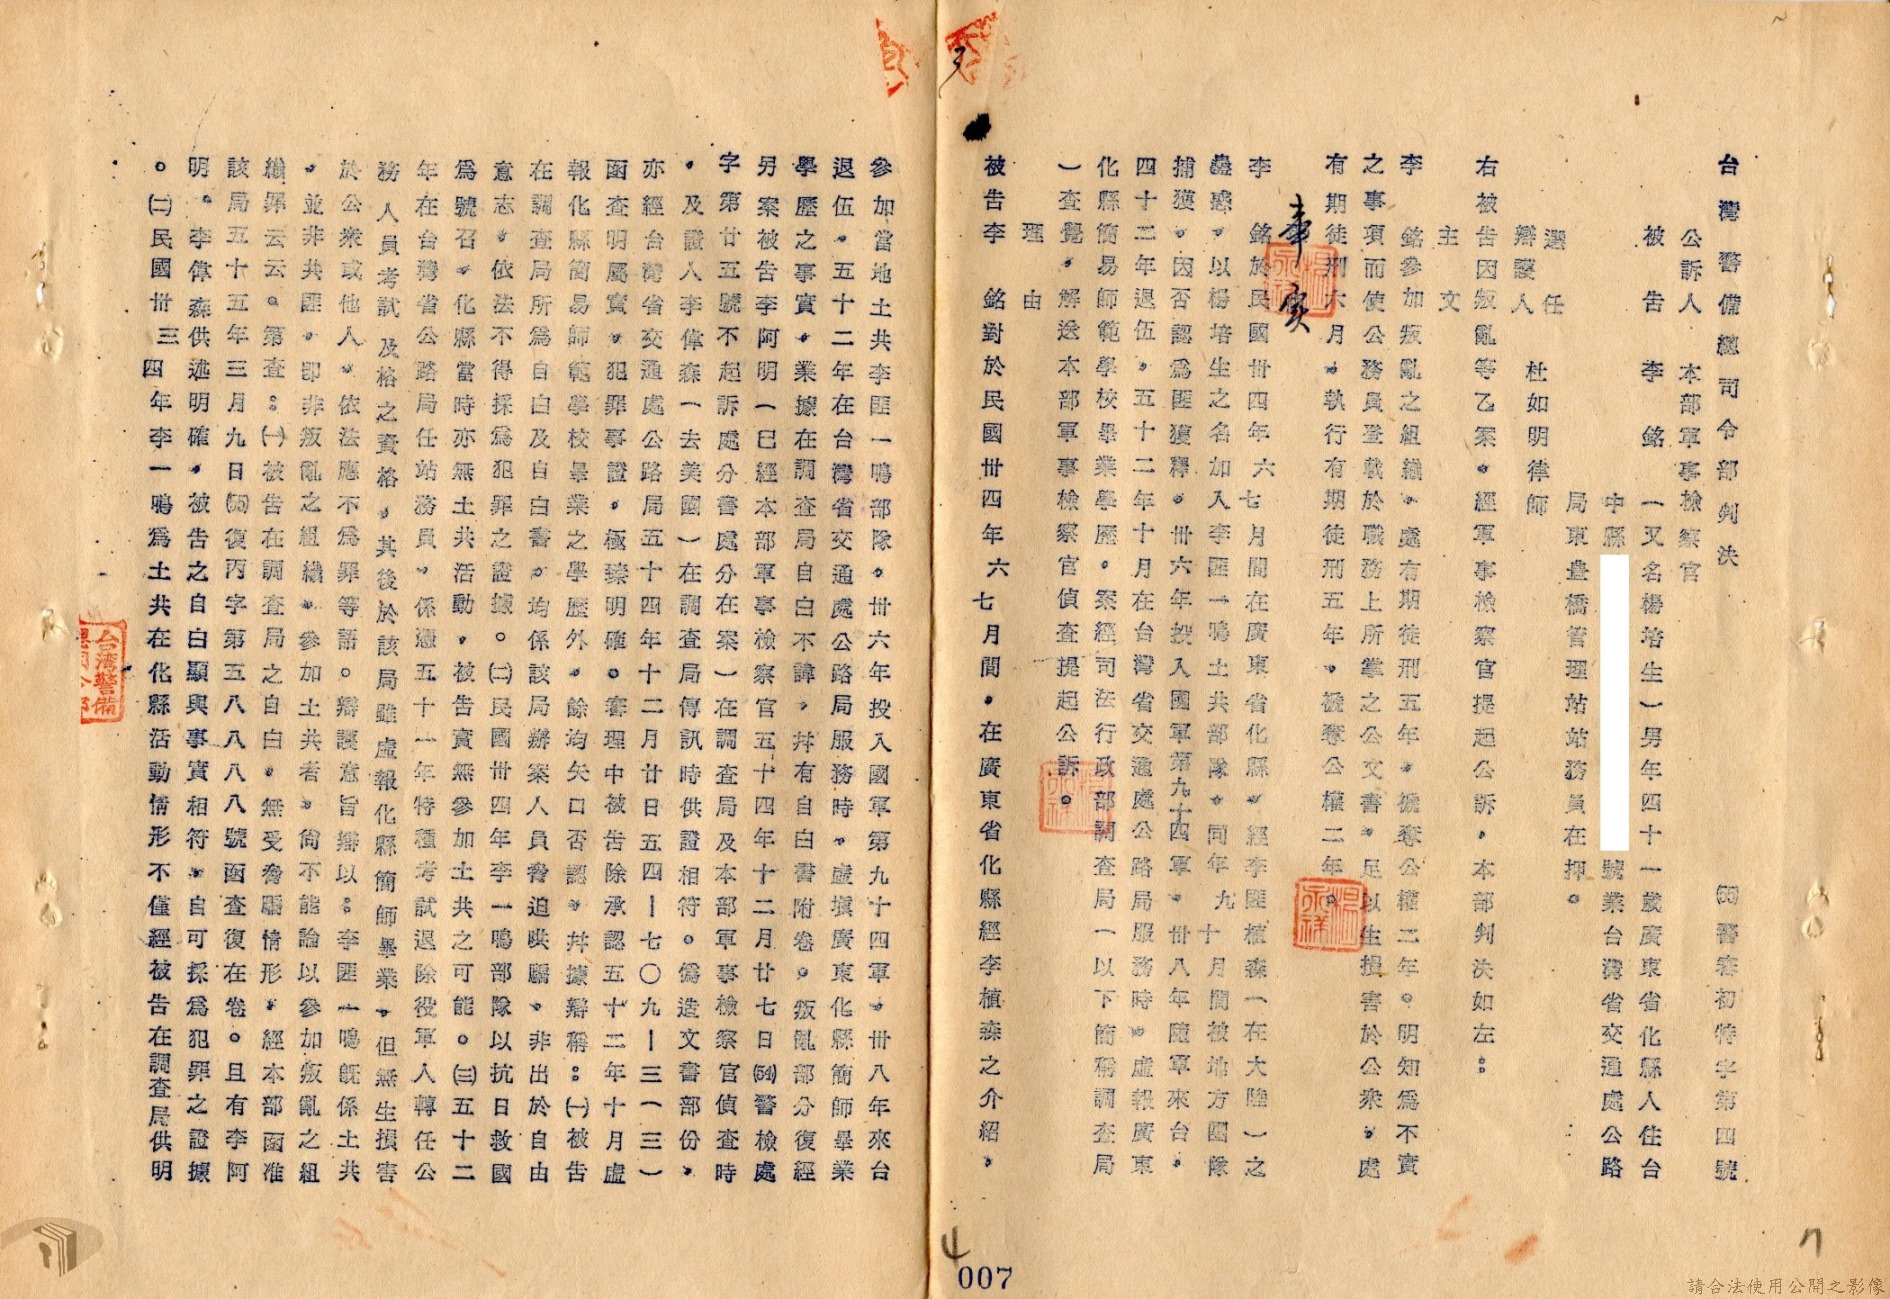 台灣警備總司令部判決 ㊺警審初特字第四號
公訴人 本部軍事檢察官
被告 李銘 一又名楊培生)男年四十一歲廣東省化縣人住台
中縣 號業台灣省交通處公路
局東臺橋管理站站務員在押。
選任
辯護人 杜如明律師
右被告因叛亂等乙案。經軍事檢察官提起公訴。本部判決如左：
主文
李銘參加叛亂之組織。處有期徒刑五年。褫奪公權二年。明知為不實
之事項而使公務員登載於職務上所掌之公文書。足以生損害於公衆。處
有期徒刑六月。執行有期徒刑五年。褫奪公權二年。
事實
李銘於民國卅四年六七月間在廣東省化縣。經李匪植森一在大陸)之
蠱惑。以楊培生之名加入李匪一鳴土共部隊。同年九十月間被地方團隊
捕獲。因否認為匪獲釋。卅六年投入國軍第九十四軍。卅八年隨軍來台。
四十二年退伍。五十二年十月在台灣省交通處公路局服務時。虛報廣東
化縣簡易師範學校畢業學歷。案經司法行政部調查局一以下簡稱調查局
)查覺。解送本部軍事檢察官偵查提起公訴。
理由
被告李銘對於民國卅四年六七月間。在廣東省化縣經李植森之介紹。
參加當地土共李匪一鳴部隊。卅六年投入國軍第九十四軍。卅八年來台
退伍。五十二年在台灣省交通處公路局服務時。虛填廣東化縣簡師畢業
學歷之事實。業據在調查局自白不諱。幷有自白書附卷。叛亂部分復經
另案被告李阿明一已經本部軍事檢察官五十四年十二月廿七日(54)警檢處
字第廿五號不起訴處分書處分在案)在調查局及本部軍事檢察官偵查時
。及證人李偉森一去美國)在調查局傳訊時供證相符。偽造文書部份。
亦經台灣省交通處公路局五十四年十二月廿日五四—七〇九—三一三)
函查明屬實。犯罪事證。極臻明確。審理中被告除承認五十二年十月虛
報化縣簡易師範學校畢業之學歷外。餘均矢口否認。幷據辯稱：㈠被告
在調查局所為自白及自白書。均係該局辦案人員脅迫哄騙。非出於自由
意志。依法不得採為犯罪之證據。㈡民國卅四年李一鳴部隊以抗日救國
為號召。化縣當時亦無土共活動。被告實無參加土共之可能。㈢五十二
年在台灣省公路局任站務員。係憑五十一年特種考試退除役軍人轉任公
務人員考試及格之資格。其後於該局雖虛報化縣簡師畢業。但無生損害
於公衆或他人。依法應不為罪等語。辯護意旨辯以：李匪一鳴既係土共
。並非共匪。卽非叛亂之組織。參加土共者。尙不能論以參加叛亂之組
織罪云云。第查：㈠被告在調查局之自白。無受脅騙情形。經本部函准
該局五十五年三月九日(55)復丙字第五八八八八號函查復在卷。且有李阿
明。李偉森供述明確。被告之自白顯與事實相符。自可採為犯罪之證據
。㈡民國卅三四年李一鳴為土共在化縣活動情形不僅經被告在調查局供明
台灣警備
007
請合法使用公開之影像